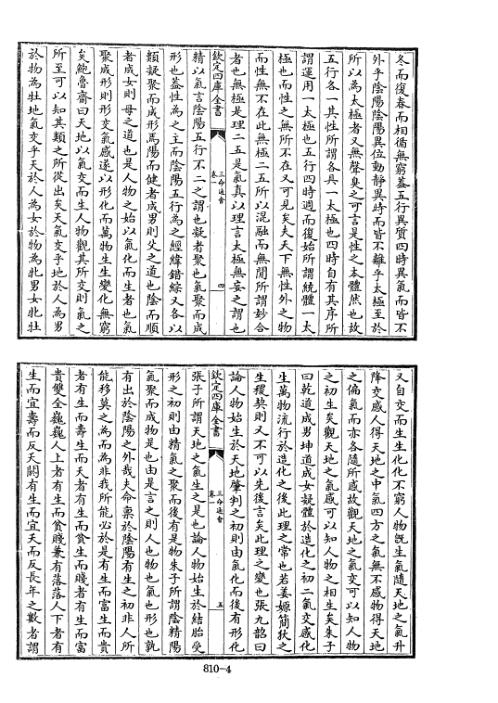 冬而復春而相循無窮蓋五行異質四時異氣而皆不
外乎陰陽陰陽異位動靜異時而皆不離乎太極至於
所以為太極者又無聲臭之可言是性之本體然也故
五行各一其性所謂各具一太極也四時自有其序所
謂運用一太極也五行四時週而復始所謂統體一太
極也而性之無所不在又可見矣夫天下無性外之物
而性無不在此無極二五所以混融而無間所謂妙合
者也無極是理二五是氣真以理言太極無妄之謂也
欽定四庫全書
三命通會
卷一
四
精以氣言陰陽五行不二之謂也凝者聚也氣聚而成
形也蓋性為之主而陰陽五行為之經緯錯綜又各以
類凝聚而成形焉陽而健者成男則父之道也陰而順
者成女則母之道也是人物之始以氣化而生者也氣
聚成形則形交氣感遂以形化而萬物生生變化無窮
矣鮑魯齋曰天地以氣交而生人物觀其所交則氣之
所至可以知其類之所從出矣天氣交乎地於人為男
於物為牡地氣交乎天於人為女於物為牝男女牝牡
又自交而生生化化不窮人物旣生氣隨天地之氣升
降交感人得天地之中氣四方之氣無不感物得天地
之偏氣而亦各隨所感故觀天地之氣交可以知人物
之初生矣觀天地之氣感可以知人物之相生矣朱子
曰乾道成男坤道成女凝體於造化之初二氣交感化
生萬物流行於造化之後此理之常也若姜嫄簡狄之
生稷契則又不可以先後言矣此理之變也張九韶曰
論人物始生於天地肇判之初則由氣化而後有形化
欽定四庫全書
三命通會
卷一
五
張子所謂天地之氣生之是也論人物始生於結胎受
形之初則由精氣之聚而後有是物朱子所謂陰精陽
氣聚而成物是也由是言之則人也物也氣也形也孰
有出於陰陽之外哉夫命稟於陰陽有生之初非人所
能移莫之為而為非我所能必於是有生而富生而貴
者有生而壽生而夭者有生而貧賤生而富
貴雙全巍巍人上者有生而貧賤兼有落落人下者有
生而宜壽而反夭闕有生而宜夭而反長年之數者謂
810-4